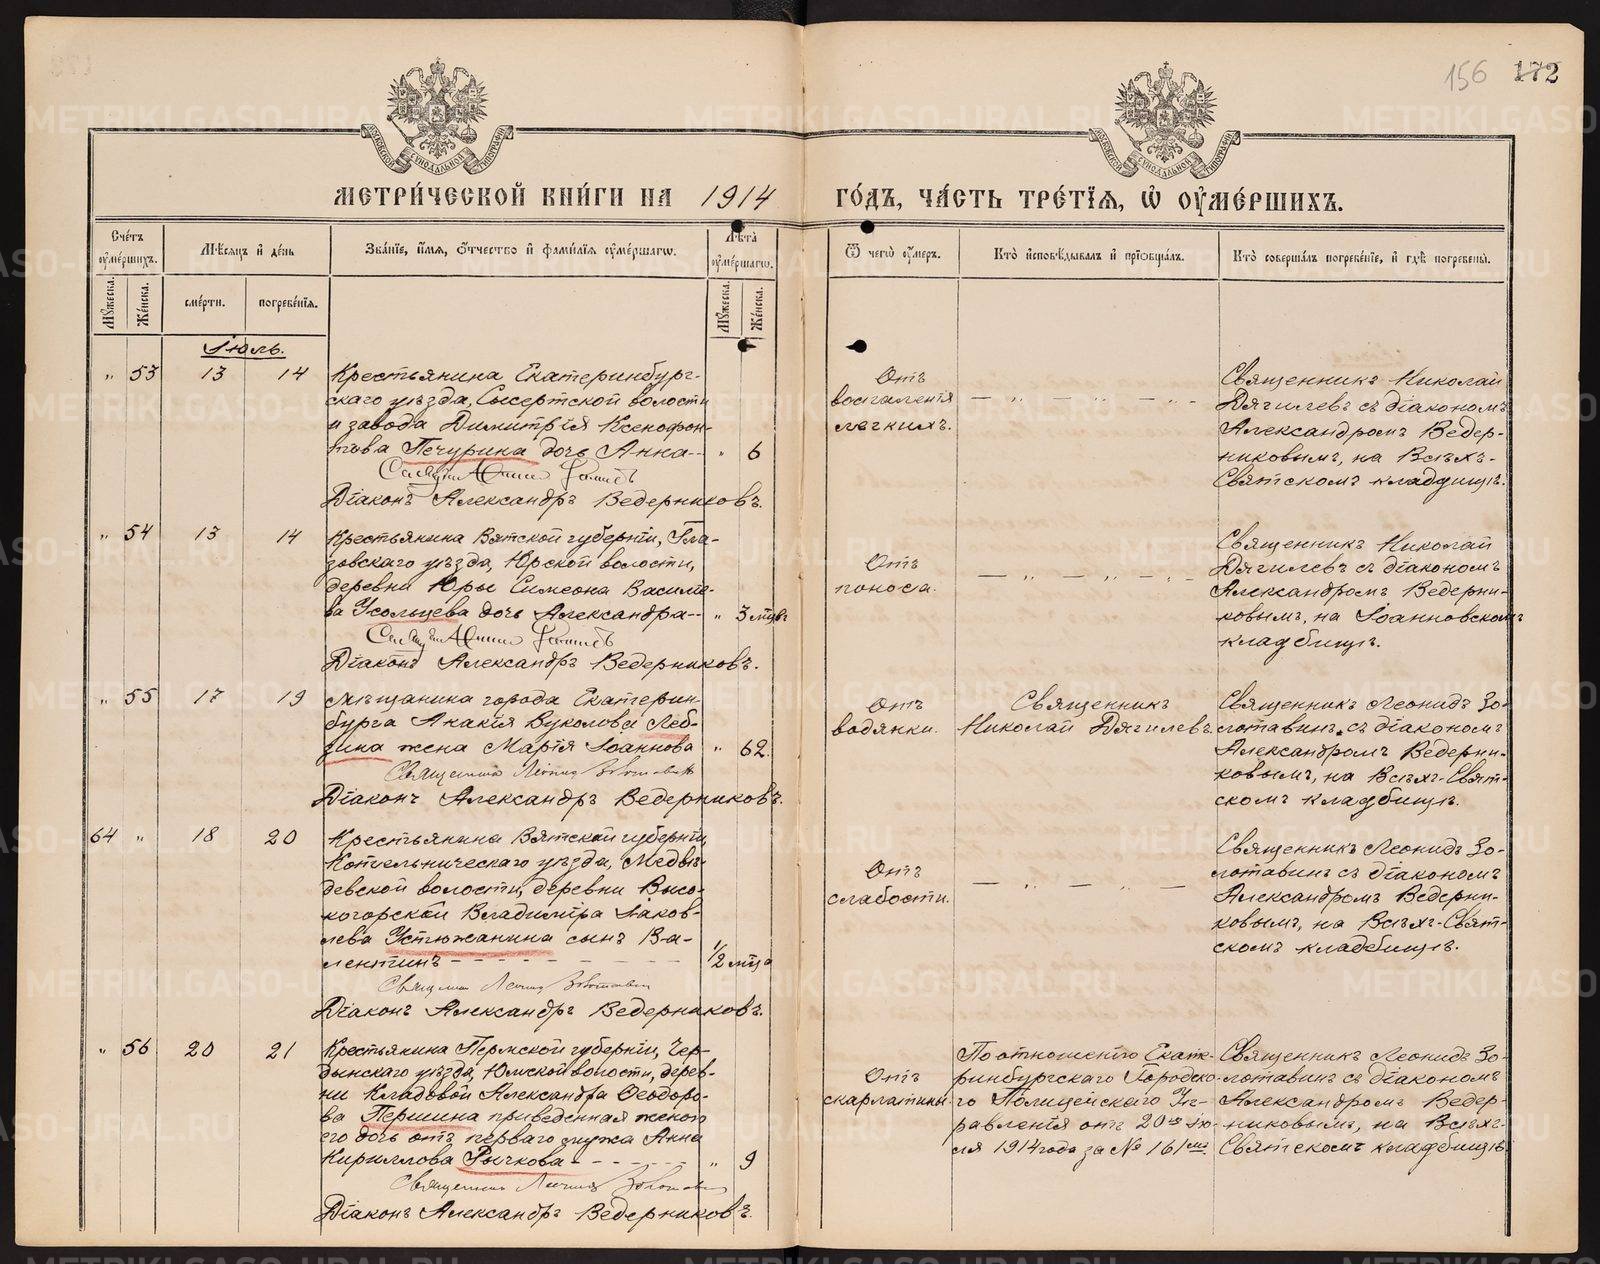 156 172
МЕТРИ́ЧЕСКОЙ КНИ́ГИ НА 1914 ГО́ДЪ, ЧА́СТЬ ТРЕ́ТІѦ, Ѡ҆ ОУ҆МЕ́РШИХЪ.
Сче́тъ оу҆ме́ршихъ.
Мꙋ́жеска.
Же́нска.
Мѣ́сѧцъ и҆ де́нь
сме́рти.
погребе́нїѧ.
Зва́нїе, и҆́мѧ, ѻ҆́тчество и҆ фами́лїѧ оу҆ме́ршагѡ.
Лѣ́та оу҆ме́ршагѡ.
Мꙋ́жеска.
Же́нска.
Ѿ чегѡ̀ оу҆́меръ.
Кто̀ и҆сповѣ́дывалъ и҆ прїѡбща́лъ.
Кто̀ соверша́лъ погребе́нїе, и҆ гдѣ̀ погребены̀.
Іюль.
" 53 13 14
Крестьянина Екатеринбург-
скаго уѣзда, Сысертской волости
и завода Димитрія Ксенофон-
това Печурина дочь Анна -- " 6
Діаконъ Александръ Ведерниковъ.
Отъ
воспаленія
легкихъ.
— " — " — " -
Священникъ Николай
Дягилевъ съ діакономъ
Александромъ Ведер-
никовымъ, на Всѣхъ-
Святскомъ кладбищѣ.
" 54 13 14
Крестьянина Вятской губерніи, Гла-
зовскаго уѣзда, Юрской волости,
деревни Юры Симеона Василье-
ва Усольцева дочь Александра -- " 3 мцвъ
Діаконъ Александръ Ведерниковъ.
Отъ
поноса.
— " — " — " -
Священникъ Николай
Дягилевъ съ діакономъ
Александромъ Ведерни-
ковымъ, на Іоанновскомъ
кладбищѣ.
" 55 17 19
Мѣщанина города Екатерин-
бурга Акакія Вуколова Леб-
зина жена Марія Іоаннова " 62.
Священникъ Леонид Золотавин
Діаконъ Александръ Ведерниковъ.
Отъ
водянки.
Священникъ
Николай Дягилевъ.
Священникъ Леонидъ Зо-
лотавинъ съ діакономъ
Александромъ Ведерни-
ковымъ, на Всѣхъ-Свят-
скомъ кладбищѣ.
64 " 18 20
Крестьянина Вятской губерніи,
Котельническаго уѣзда, Медвѣ-
девской волости, деревни Высо-
когорской Владиміра Іаков-
лева Устюжанина сынъ Ва-
лентинъ - - - - - - - - 1/2 мца
Священникъ Леонид Золотавин
Діаконъ Александръ Ведерниковъ.
Отъ
слабости.
— " — " —
Священникъ Леонидъ Зо-
лотавинъ съ діакономъ
Александромъ Ведерни-
ковымъ, на Всѣхъ-Свят-
скомъ кладбищѣ.
" 56 20 21
Крестьянина Пермской губерніи, Чер-
дынскаго уѣзда, Юмской волости, дерев-
ни Кладовой Александра Ѳеодоро-
ва Першина приведенная женой
его дочь отъ перваго мужа Анна
Кириллова Рычкова - - - - - " 9
Священникъ Леонид Золотавин
Діаконъ Александръ Ведерниковъ.
Отъ
скарлатины.
По отношенію Екате-
ринбургскаго Городско-
го Полицейскаго Уп-
равленія отъ 20го ію-
ля 1914 года за № 161мъ.
Священникъ Леонидъ Зо-
лотавинъ съ діакономъ
Александромъ Ведер-
никовымъ, на Всѣхъ-
Святскомъ кладбищѣ.
METRIKI.GASO-URAL.RU